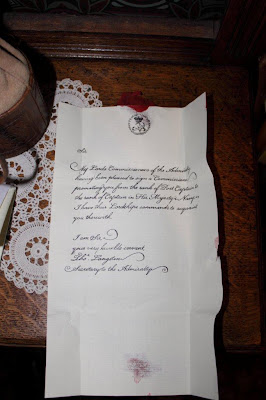 Sir
My Lords Commissioners of the Admiralty
having been pleased to sign a Commission
promoting you from the rank of Post Captain to
the rank of Captain in His Majesty's Navy
I have their Lordships commands to acquaint
you therewith
I am Sir
your very humble servant
Thos. Langdon
Secretary to the Admiralty